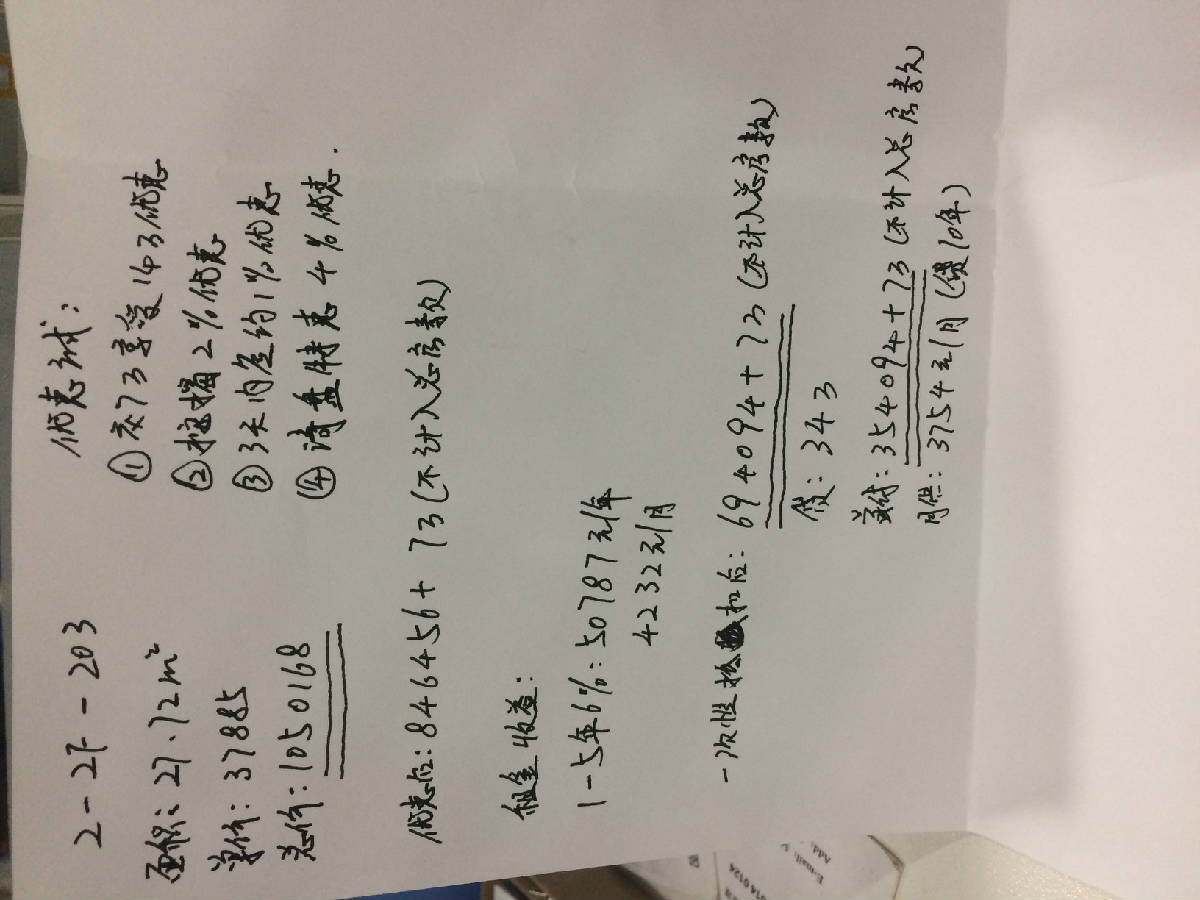 2-2F-203
面积：27.72m²
单价：37885
总价：1050168
优惠方式：
①交7万享受14万优惠
②按揭2%优惠
③3天内签约1%优惠
④清盘特惠4%优惠.
优惠后：846456+7万(不计入总房款)
租金收益：
1-5年6%：50787元/年
4232元/月
一次性抵扣后：694094+7万(不计入总房款)
贷：34万
首付：354094+7万(不计入总房款)
月供：3754元/月(贷10年)